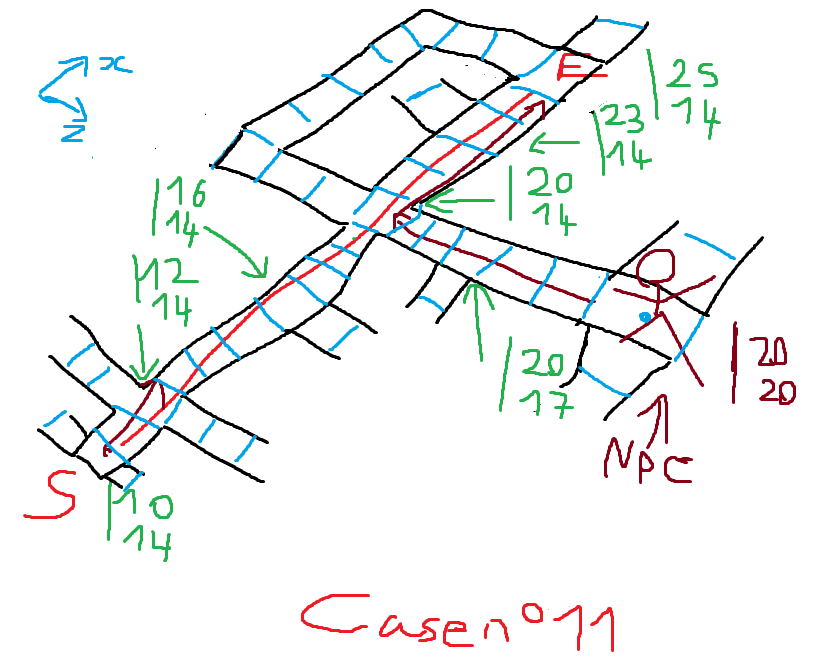 E
x
z
25
14
23
14
20
14
16
14
12
14
20
17
20
20
NPC
S
10
14
Case n°11